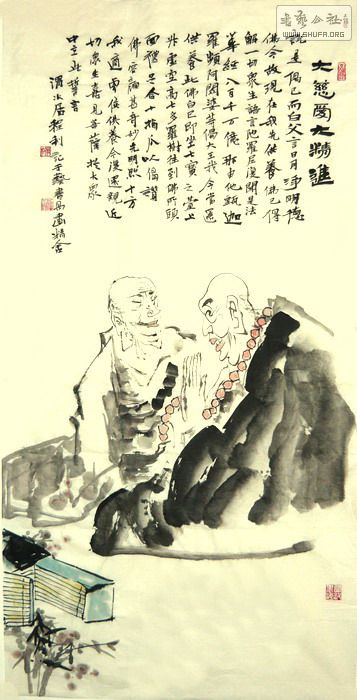 书艺公社
WWW.SHUFA.ORG
大慈爱大精進
說是偈已而白父言日月淨明德
佛今故現在我先供養佛已得
解一切衆生語言陀羅尼復聞是法
華經八百千万億那由他甄迦
羅頻阿閦婆等偈大王我今當還
供養此佛白已即坐七寶之臺上
昇虛空高七多羅樹往到佛所頭
面禮足合十指爪以偈讚
佛容顏甚奇妙光明照十方
我適曾供養今復還親近
切衆生喜見菩薩於大衆
中立此誓言
渭水居程利
畫精舍